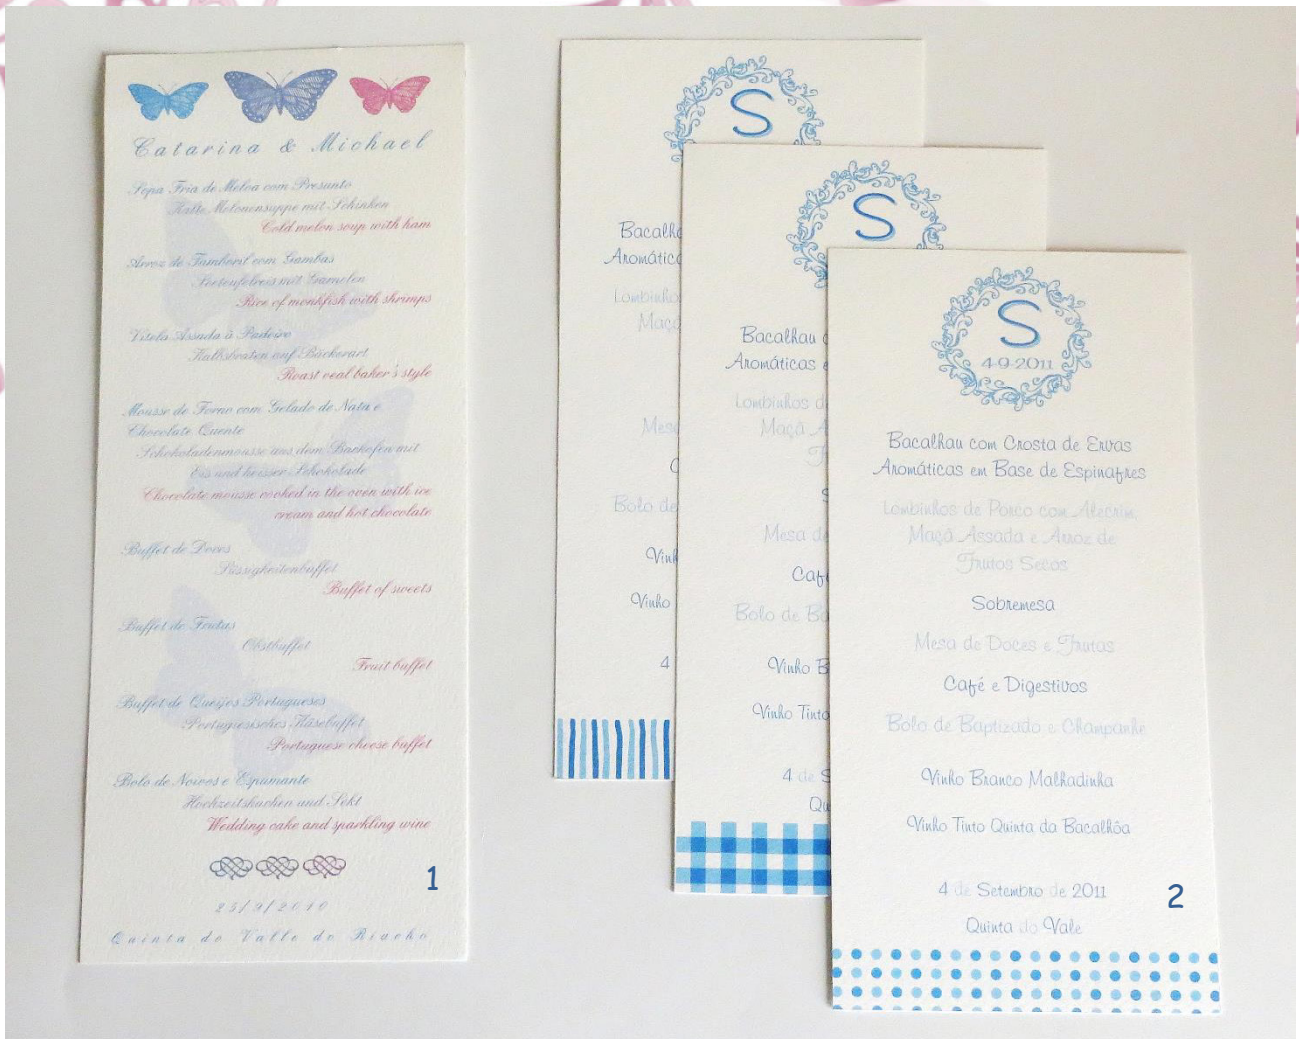 Catarina & Michael
Sopa Fria de Meloa com Presunto
Kalte Melonensuppe mit Schinken
Cold melon soup with ham
Arroz de Tamboril com Gambas
Seeteufelreis mit Garnelen
Rice of monkfish with shrimps
Vitela Assada à Padeiro
Kalbsbraten auf Bäckerart
Roast veal baker's style
Mousse de Forno com Gelado de Nata e
Chocolate Quente
Schokoladenmousse aus dem Backofen mit
Eis und heisser Schokolade
Chocolate mousse cooked in the oven with ice
cream and hot chocolate
Buffet de Doces
Süssigkeitenbuffet
Buffet of sweets
Buffet de Frutas
Obstbuffet
Fruit buffet
Buffet de Queijos Portugueses
Portugiesisches Käsebuffet
Portuguese cheese buffet
Bolo de Noivos e Espumante
Hochzeitskuchen und Sekt
Wedding cake and sparkling wine
1
25/9/2010
Quinta do Valle do Riacho
S
Bacalha
Aromátic
Lombinho
Maçã
Mesa
Bolo de
Vinh
Vinho
4
S
Bacalhau
Aromáticas
Lombinhos d
Maçã A
F
S
Mesa de
Café
Bolo de Ba
Vinho B
Vinho Tinto
4 de S
Qu
S
4-9-2011
Bacalhau com Crosta de Ervas
Aromáticas em Base de Espinafres
Lombinhos de Porco com Alecrim,
Maçã Assada e Arroz de
Frutos Secos
Sobremesa
Mesa de Doces e Frutas
Café e Digestivos
Bolo de Baptizado e Champanhe
Vinho Branco Malhadinha
Vinho Tinto Quinta da Bacalhôa
4 de Setembro de 2011
2
Quinta do Vale